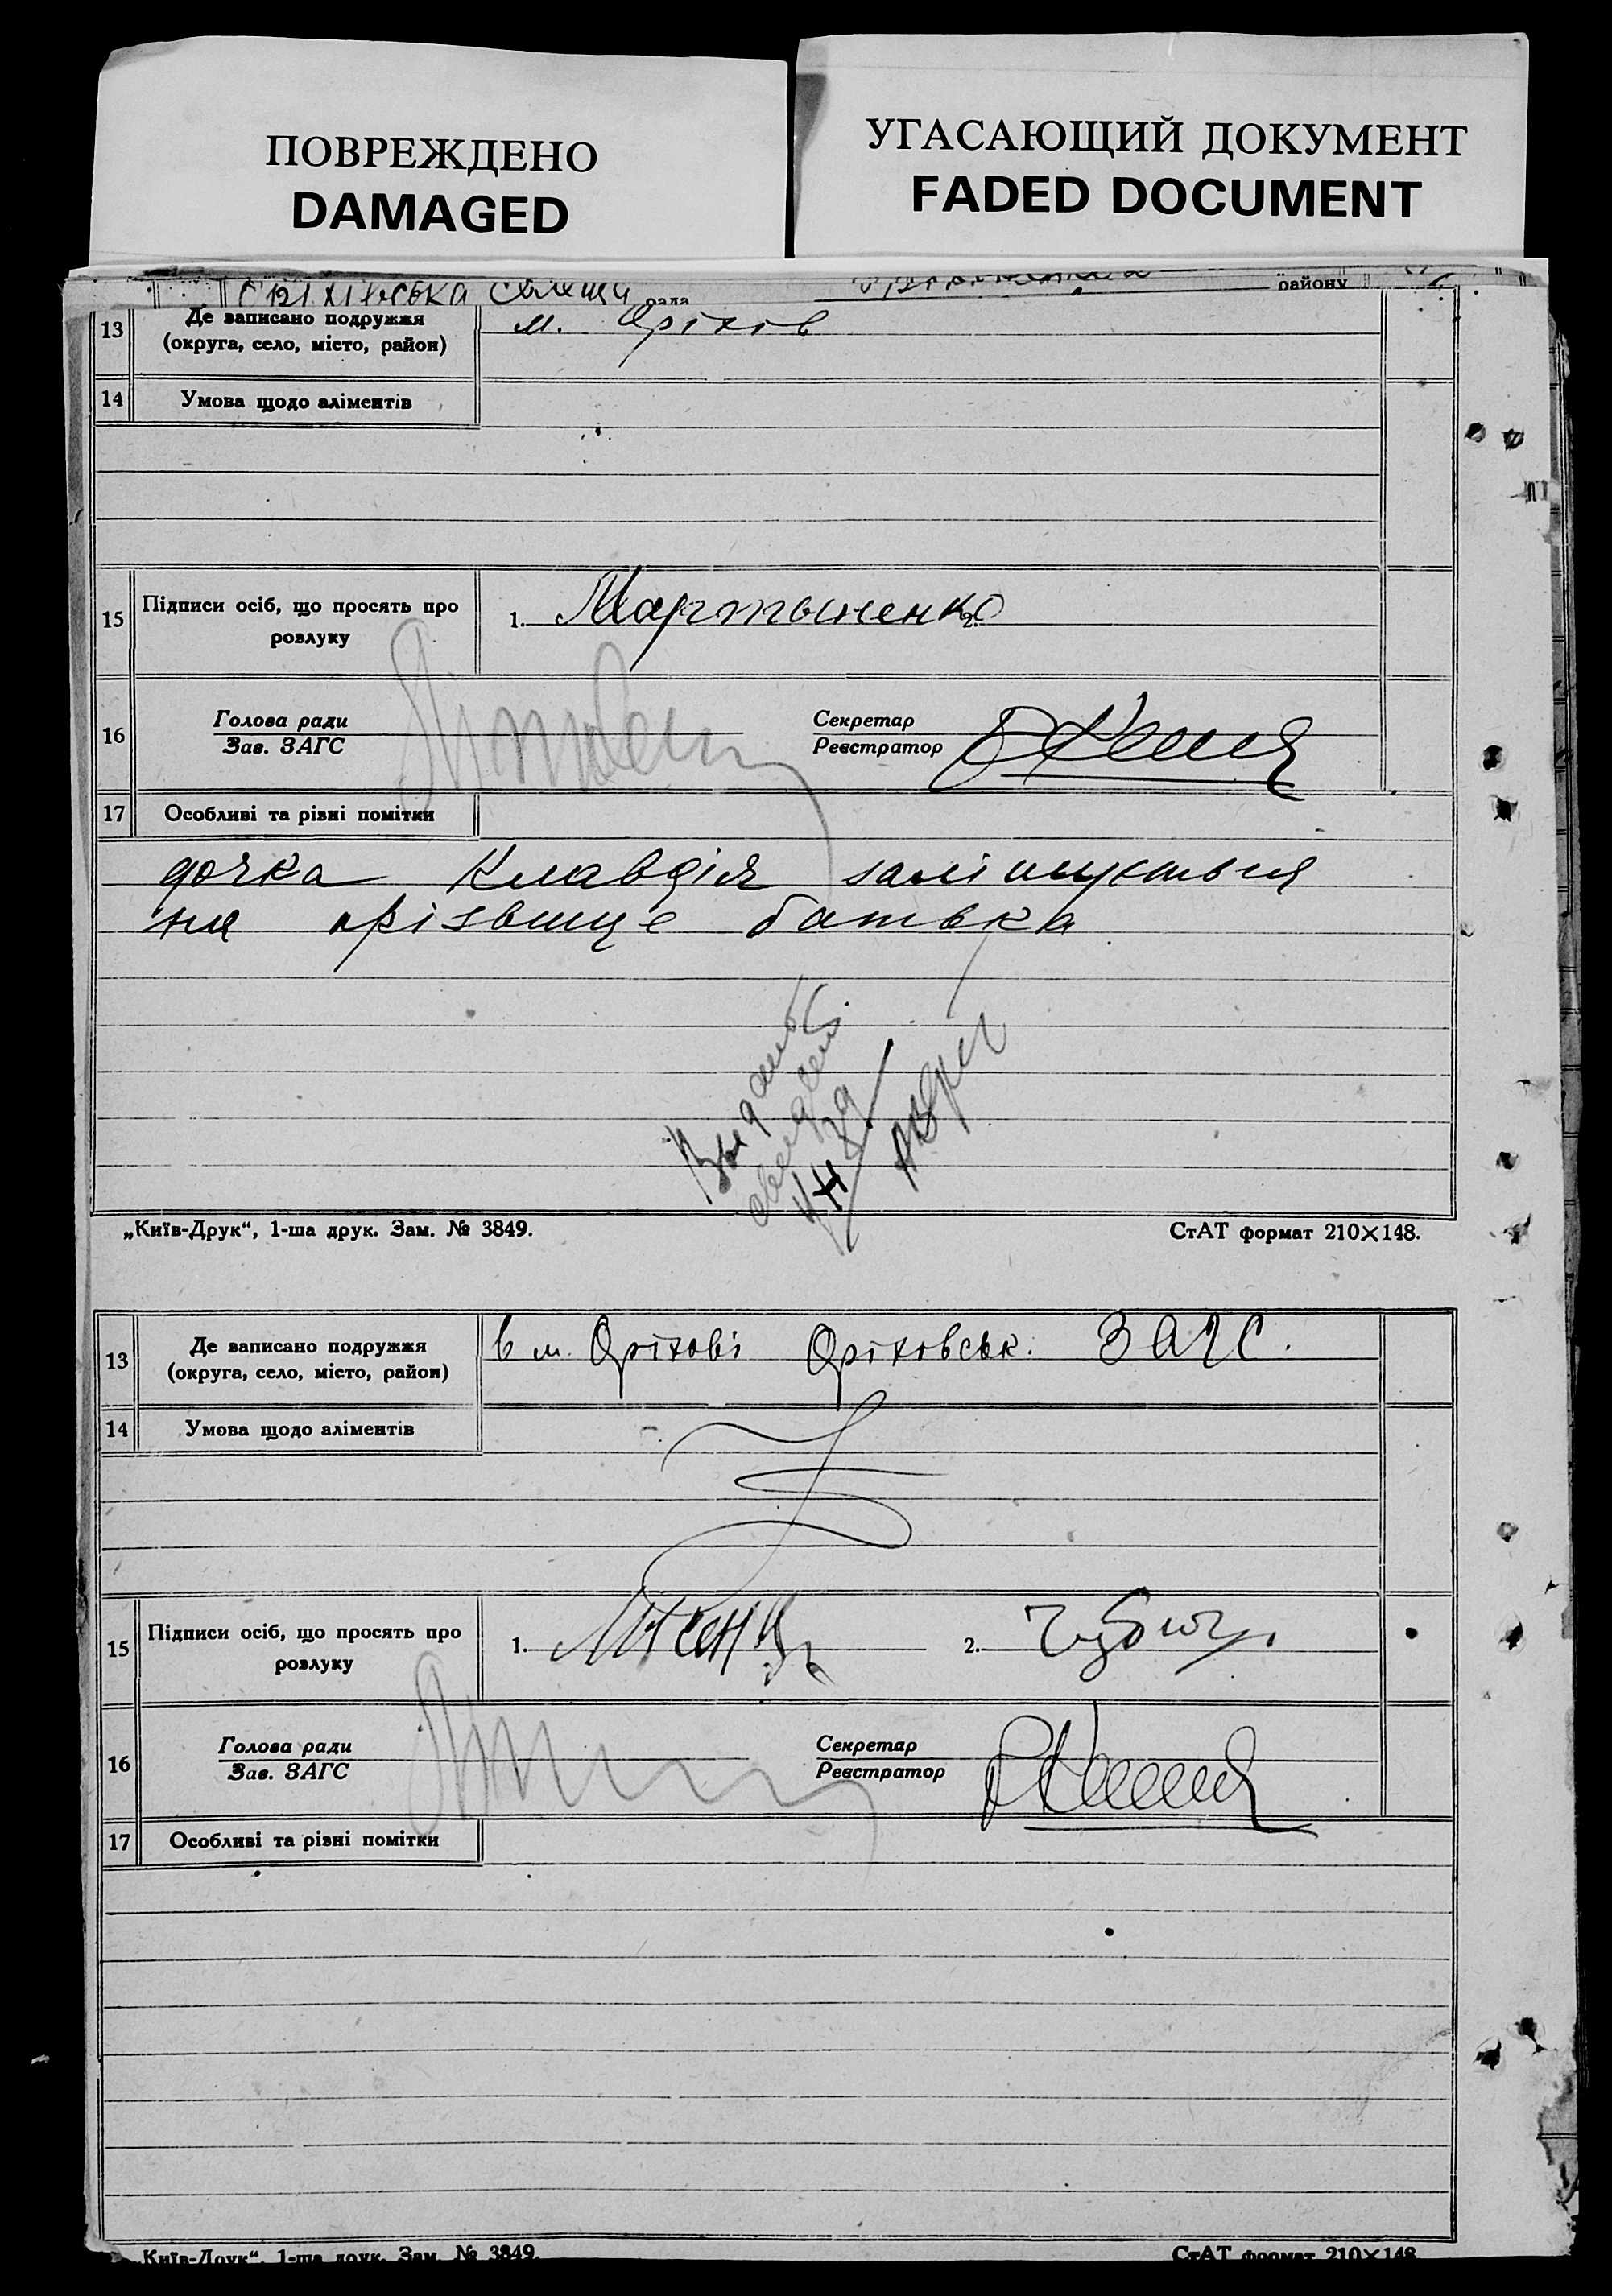 ПОВРЕЖДЕНО
DAMAGED
УГАСАЮЩИЙ ДОКУМЕНТ
FADED DOCUMENT
рада району
13 Де записано подружжя (округа, село, місто, район) м. Оріхів
14 Умова щодо аліментів
15 Підписи осіб, що просять про розлуку 1. Мартыненко 2.
16 Голова ради Секретар
Зав. ЗАГС Реєстратор
17 Особливі та різні помітки
дочка Клавдія залишується
на прізвище батька
Выдано
„Київ-Друк“, 1-ша друк. Зам. № 3849. СтАТ формат 210×148.
13 Де записано подружжя (округа, село, місто, район) в м. Оріхові Оріховськ. ЗАГС.
14 Умова щодо аліментів
15 Підписи осіб, що просять про розлуку 1. 2.
16 Голова ради Секретар
Зав. ЗАГС Реєстратор
17 Особливі та різні помітки
„Київ-Друк“, 1-ша друк. Зам. № 3849. СтАТ формат 210×148.